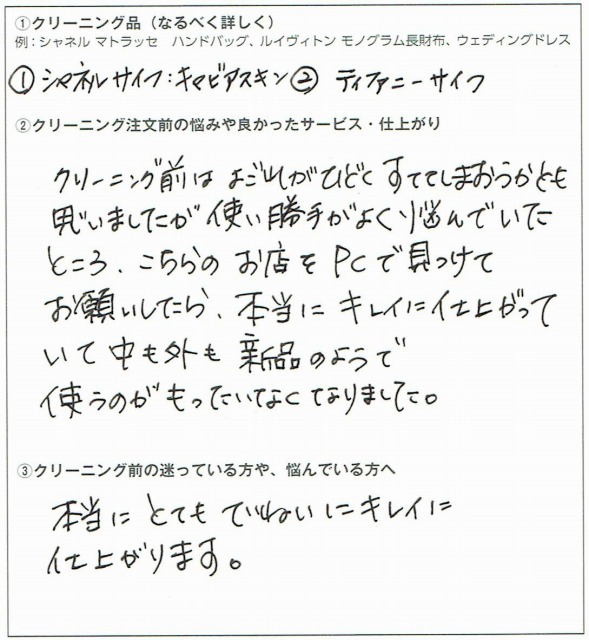 ①クリーニング品（なるべく詳しく）
例：シャネル マトラッセ　ハンドバッグ、ルイヴィトン モノグラム長財布、ウェディングドレス
① シャネルサイフ：キャビアスキン ② ティファニーサイフ
②クリーニング注文前の悩みや良かったサービス・仕上がり
クリーニング前は よごれがひどく すててしまおうかとも
思いましたが 使い勝手がよく 悩んでいた
ところ、こちらの お店を PCで見つけて
お願いしたら、本当に キレイに仕上がって
いて 中も外も 新品のようで
使うのが もったいなくなりました。
③クリーニング前の迷っている方や、悩んでいる方へ
本当に とても ていねいにキレイに
仕上がります。